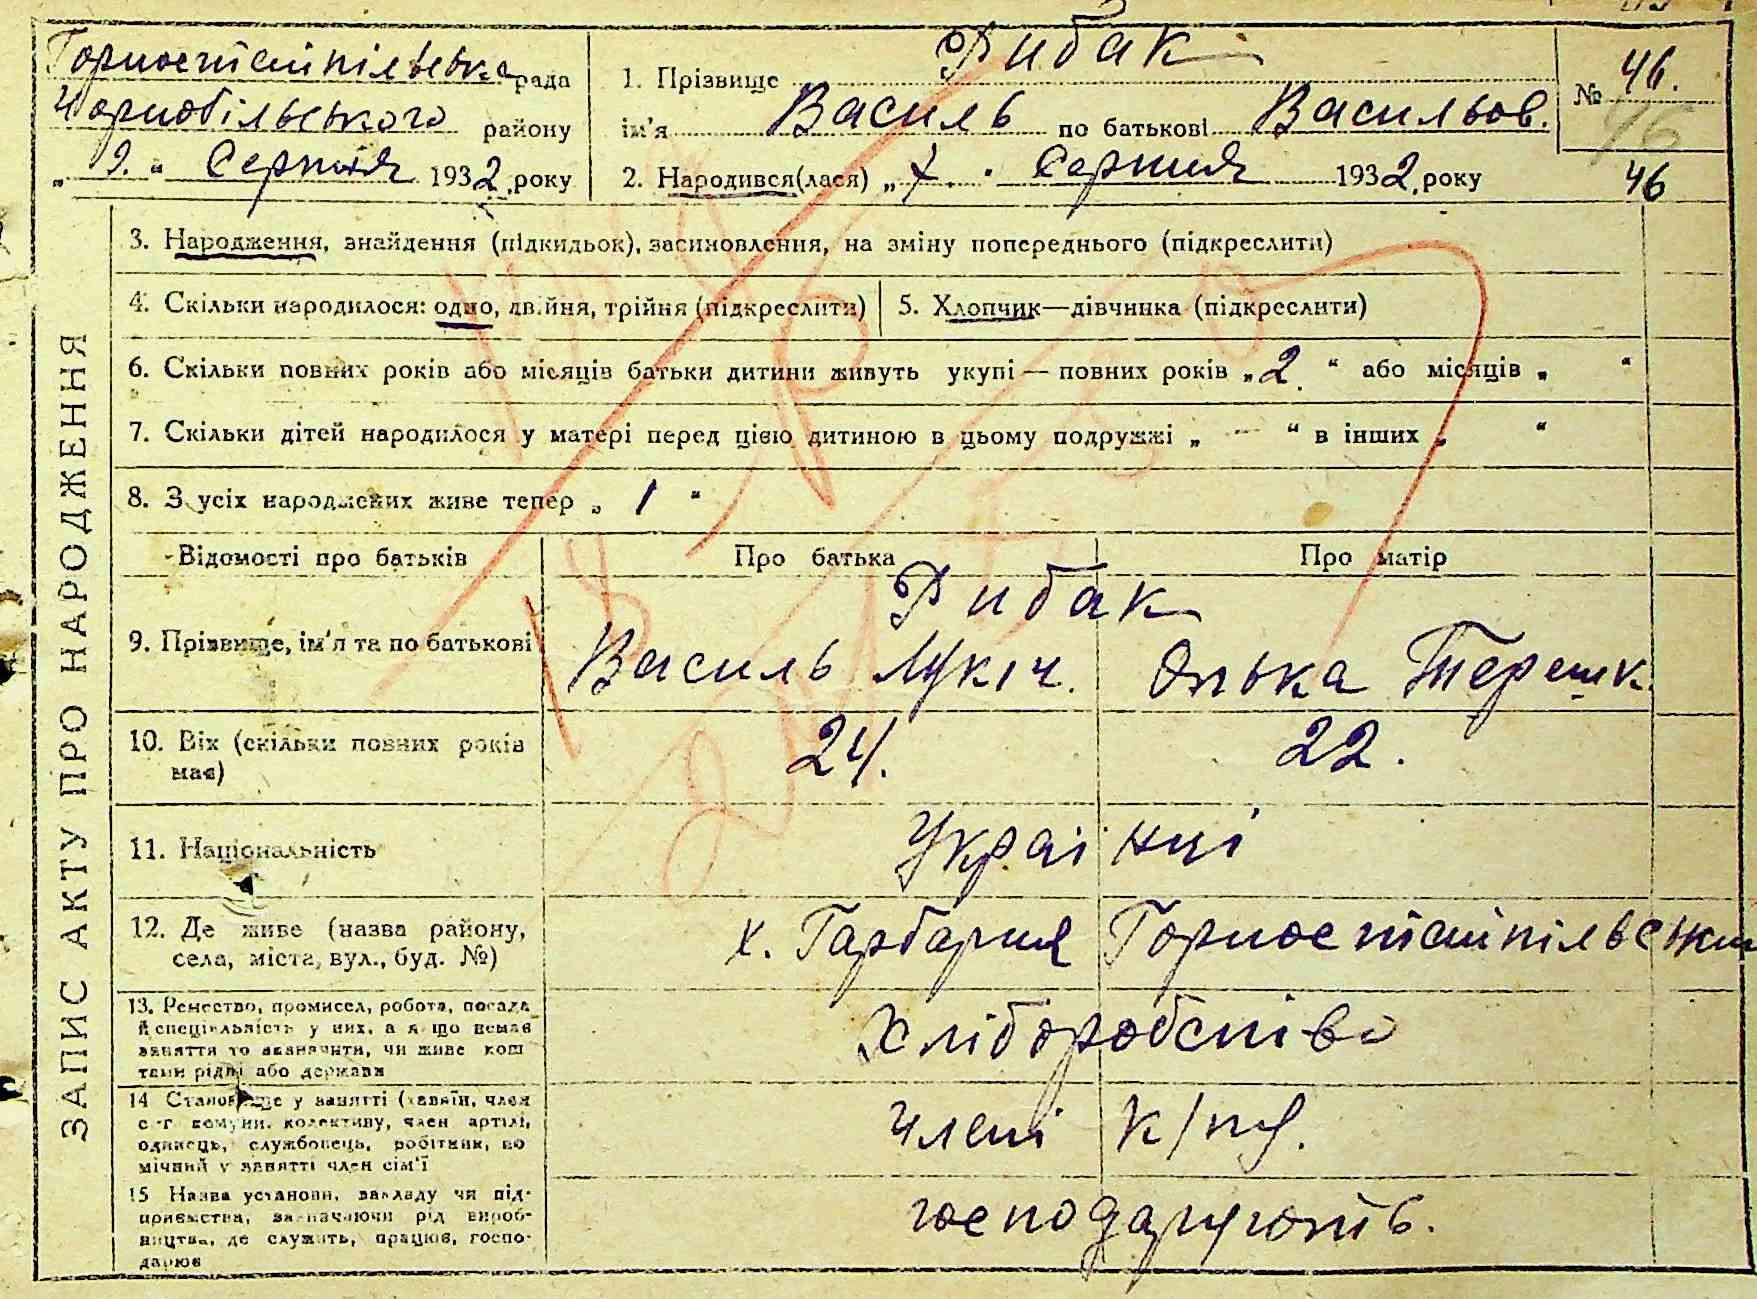 Горностайпільська рада
Чорнобільського району
„ 9. “ Серпня 1932. року
1. Прізвище Рибак
ім'я Василь по батькові Васильов.
2. Народився(лася) „ 7. “ Серпня 1932. року
№ 46.
46
46
ЗАПИС АКТУ ПРО НАРОДЖЕННЯ
3. Народження, знайдення (підкидьок), засиновлення, на зміну попереднього (підкреслити)
4. Скільки народилося: одно, двійня, трійня (підкреслити)
5. Хлопчик—дівчинка (підкреслити)
6. Скільки повних років або місяців батьки дитини живуть укупі — повних років „ 2. “ або місяців „ “
7. Скільки дітей народилося у матері перед цією дитиною в цьому подружжі „ - “ в інших „ “
8. З усіх народжених живе тепер „ 1 “
Відомості про батьків
Про батька
Про матір
9. Прізвище, ім'я та по батькові
Рибак
Василь Лукіч.
Олька Терешк.
10. Вік (скільки повних років має)
24.
22.
11. Національність
Українці
12. Де живе (назва району,
села, міста, вул., буд. №)
х. Гарбарня Горностайпільськ
13. Ремество, промисел, робота, посада
й спеціяльність у них, а якщо немає
заняття то зазначити, чи живе кош
тами рідні або держави
Хліборобство
14 Становище у занятті (хазяїн, член
с-г комуни, колективу, член артілі,
одинець, службовець, робітник, по
мічний у занятті член сім'ї
члені к/гу.
15 Назва установи, закладу чи під-
приємства, зазначаючи рід вироб-
ництва, де служить, працює, госпо-
дарює
господарують.